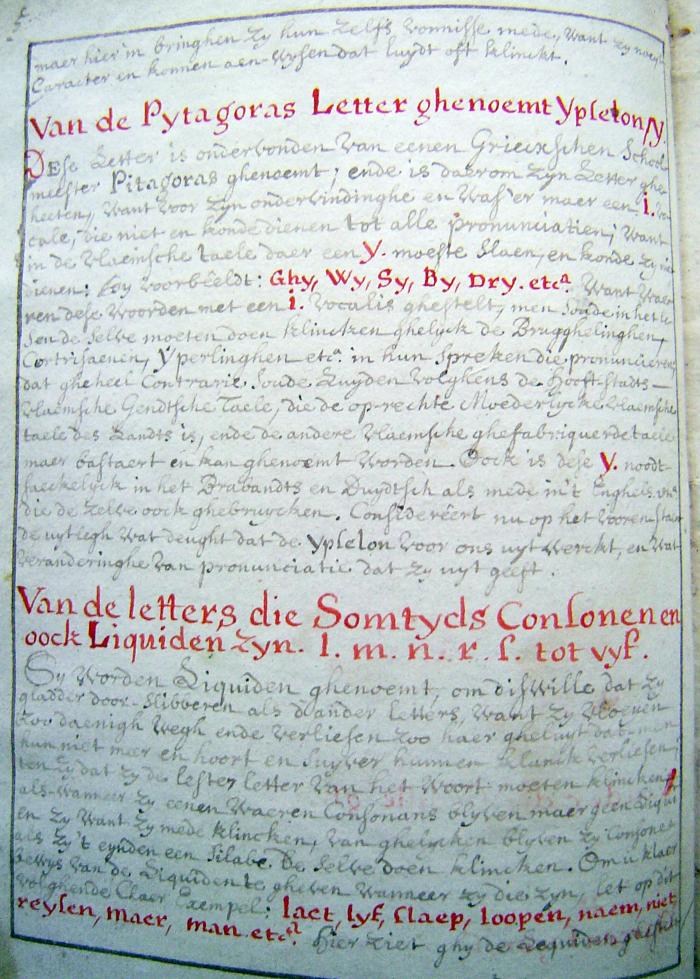 maer hier in bringhen zy hun zelfs vonnisse mede, want zy noeyt
Caracter en konnen aen-wysen dat luydt oft klinckt.
Van de Pytagoras Letter ghenoemt Ypsleton, y.
Dese Letter is ondervonden van eenen Grieckschen School
meester Pitagoras ghenoemt; ende is daerom zyn Letter ghe
heeten, want voor zyn ondervindinghe en was'er maer een i. vo
cale, die niet en konde dienen tot alle pronunciatien; want
in de vlaemsche taele daer een y. moeste staen, en konde zy niet
dienen: by voorbeeldt: Ghy, Wy, Sy, By, Dry. etca. Want waer
ren dese woorden met een i. vocalis ghestelt, men soude in het le
sen de selve moeten doen klincken ghelyck de Brugghelinghen,
Cortrisaenen, Yperlinghen etca. in hun spreken die pronuncieren
dat gheheel Contrarie soude luyden volghens de Hooft-stadts-
vlaemsche Gendtsche Taele, die de op-rechte Moederlycke vlaemsche
taele des Landts is, ende de andere vlaemsche ghefabriqueerde taele
maer bastaert en kan ghenoemt worden. Oock is dese y. noodt-
saeckelyck in het Brabandts en Duydtsch als mede in't Enghels
die de zelve oock ghebruycken. Considereert nu op het vooren staen
de uytlegh wat deught dat de Ypsleton voor ons uyt werckt, en wat
veranderinghe van pronunciatie dat zy uyt geeft.
Van de letters die Somtyds Consonen en
oock Liquiden zyn. l. m. n. r. s. tot vyf.
Sy worden Liquiden ghenoemt, om diswille dat zy
gladder door-slibberen als d'ander letters, want zy vloeyen
zoo daenigh wegh ende verliesen zoo haer gheluyt dat men
hun niet meer en hoort en suyver hunnen klanck verliesen,
ten zy dat zy de lester letter van het woort moeten klincken,
als-wanneer zy eenen waeren Consonans blyven maer geen Liqui
en zy want zy mede klincken, van ghelycken blyven zy Consonen
als zy't eynden een silabe. De selve doen klincken. Om u klaer
bewys van de Liquiden te gheven wanneer zy die zyn, let op dit
volghende Claer Exempel: laet, lyf, slaep, loopen, naem, niet
reysen, maer, man. etca. Hier ziet ghy de Lequiden ghestelt